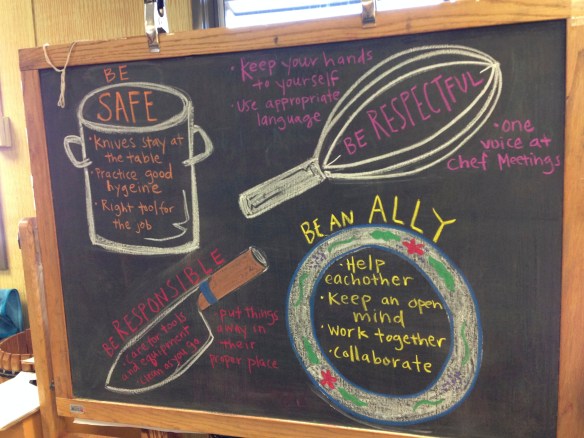 BE
SAFE
• Knives stay at
the table
• Practice good
hygeine
• Right tool for
the job
• Keep your hands
to yourself
• Use appropriate
language
BE RESPECTFUL
• one
voice at
Chef Meetings
BE RESPONSIBLE
• Care for tools
and equipment
• Clean as you go
• put things
away in
their
proper place
BE AN ALLY
• Help
eachother
• Keep an open
mind
• Work together
• Collaborate